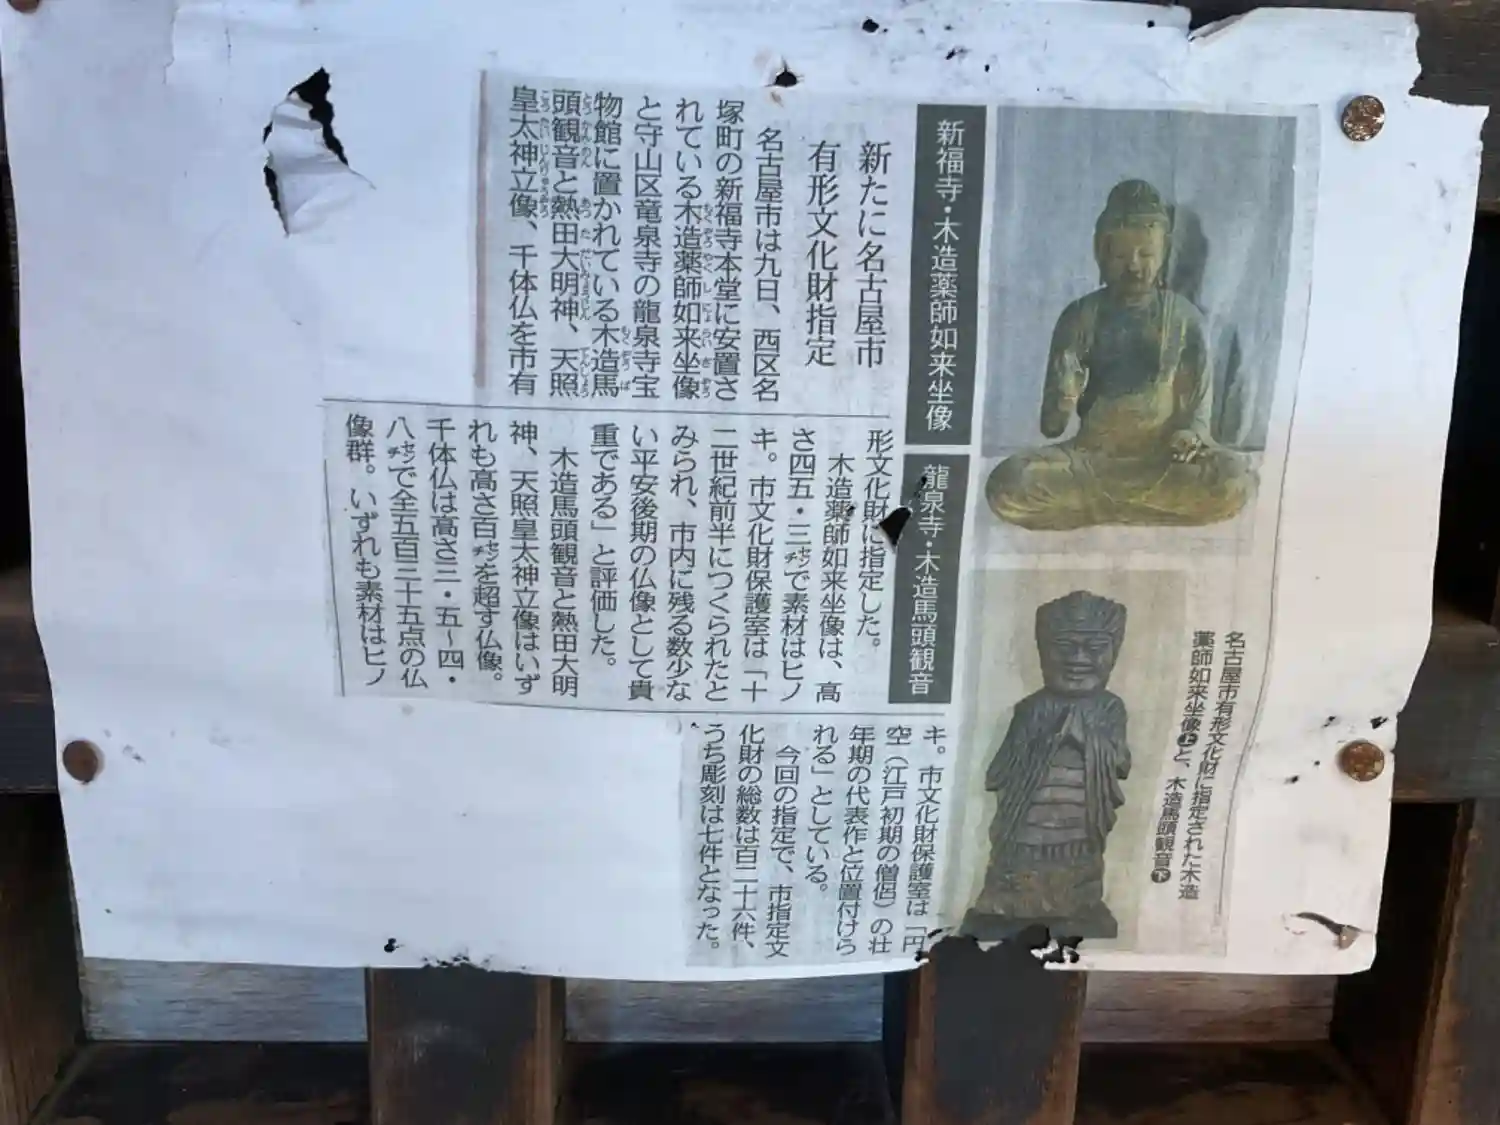 新福寺・木造薬師如来坐像
龍泉寺・木造馬頭観音
新たに名古屋市
有形文化財指定
名古屋市は九日、西区名
塚町の新福寺本堂に安置さ
れている木造薬師如来坐像
と守山区竜泉寺の龍泉寺宝
物館に置かれている木造馬
頭観音と熱田大明神、天照
皇太神立像、千体仏を市有
形文化財に指定した。
木造薬師如来坐像は、高
さ四五・三㌢で素材はヒノ
キ。市文化財保護室は「十
二世紀前半につくられたと
みられ、市内に残る数少な
い平安後期の仏像として貴
重である」と評価した。
木造馬頭観音と熱田大明
神、天照皇太神立像はいず
れも高さ百㌢を超す仏像。
千体仏は高さ三・五〜四・
八㌢で全五百三十五点の仏
像群。いずれも素材はヒノ
キ。市文化財保護室は「円
空（江戸初期の僧侶）の壮
年期の代表作と位置付けら
れる」としている。
今回の指定で、市指定文
化財の総数は百二十六件、
うち彫刻は七件となった。
名古屋市有形文化財に指定された木造
薬師如来坐像㊤と、木造馬頭観音㊦